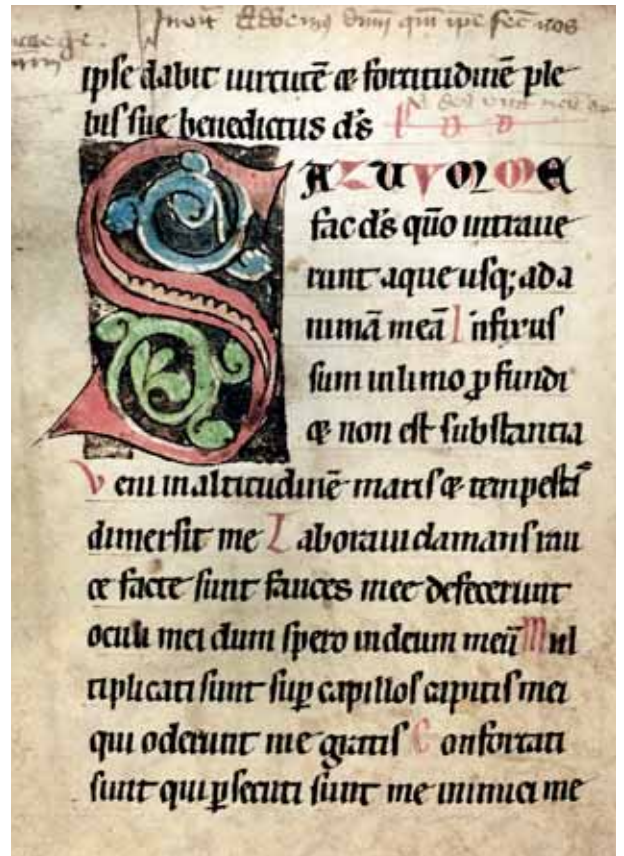 Adoremus dnm qm ipe fec nos
ipse dabit uirtutē & fortitudinē ple
bis sue benedictus ds̄
SALUVM ME
fac ds̄ qm̄ intraue
runt aque usq; ad a
nimā meā Infixus
sum in limo ꝓfundi
& non est substantia
Veni in altitudinē maris & tempestā
dimersit me Laboraui clamans rau
ce facte sunt fauces mee defecerunt
oculi mei dum spero in deum meū Mul
tiplicati sunt suꝑ capillos capitis mei
qui oderunt me gratis Confortati
sunt qui ꝑsecuti sunt me inimici me